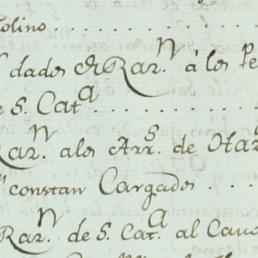 olino . . . . . .
dados en Rar.ⁿ á los Pe
e S. Catᵃ . . . . . . . .
Rar.ⁿ alos Arr.ˢ de Har
constan Cargados . . .
Rar.ⁿ de S. Cat.ᵃ al Cavo